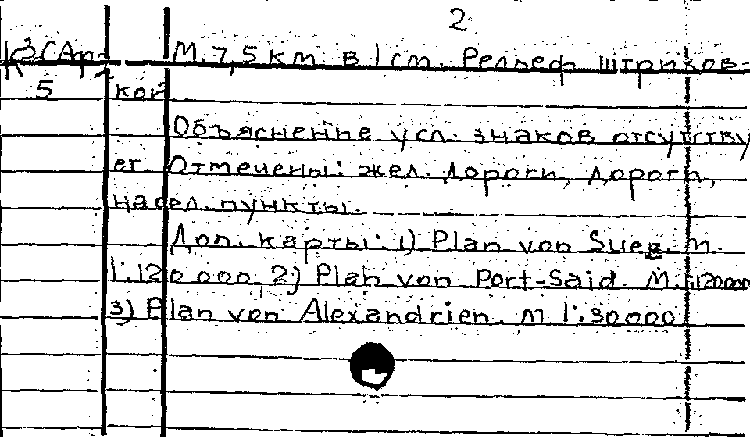 2
К3(Ар) М. 7,5 км в 1 см. Рельеф штрихов-
5 кой
Объяснение усл. знаков отсутству
ет. Отмечены: жел. дороги, дороги,
насел. пункты.
Доп. карты: 1) Plan von Suez. М.
1:120000 2) Plan von Port-Said. М. 1:120000
3) Plan von Alexandrien. М 1:30000